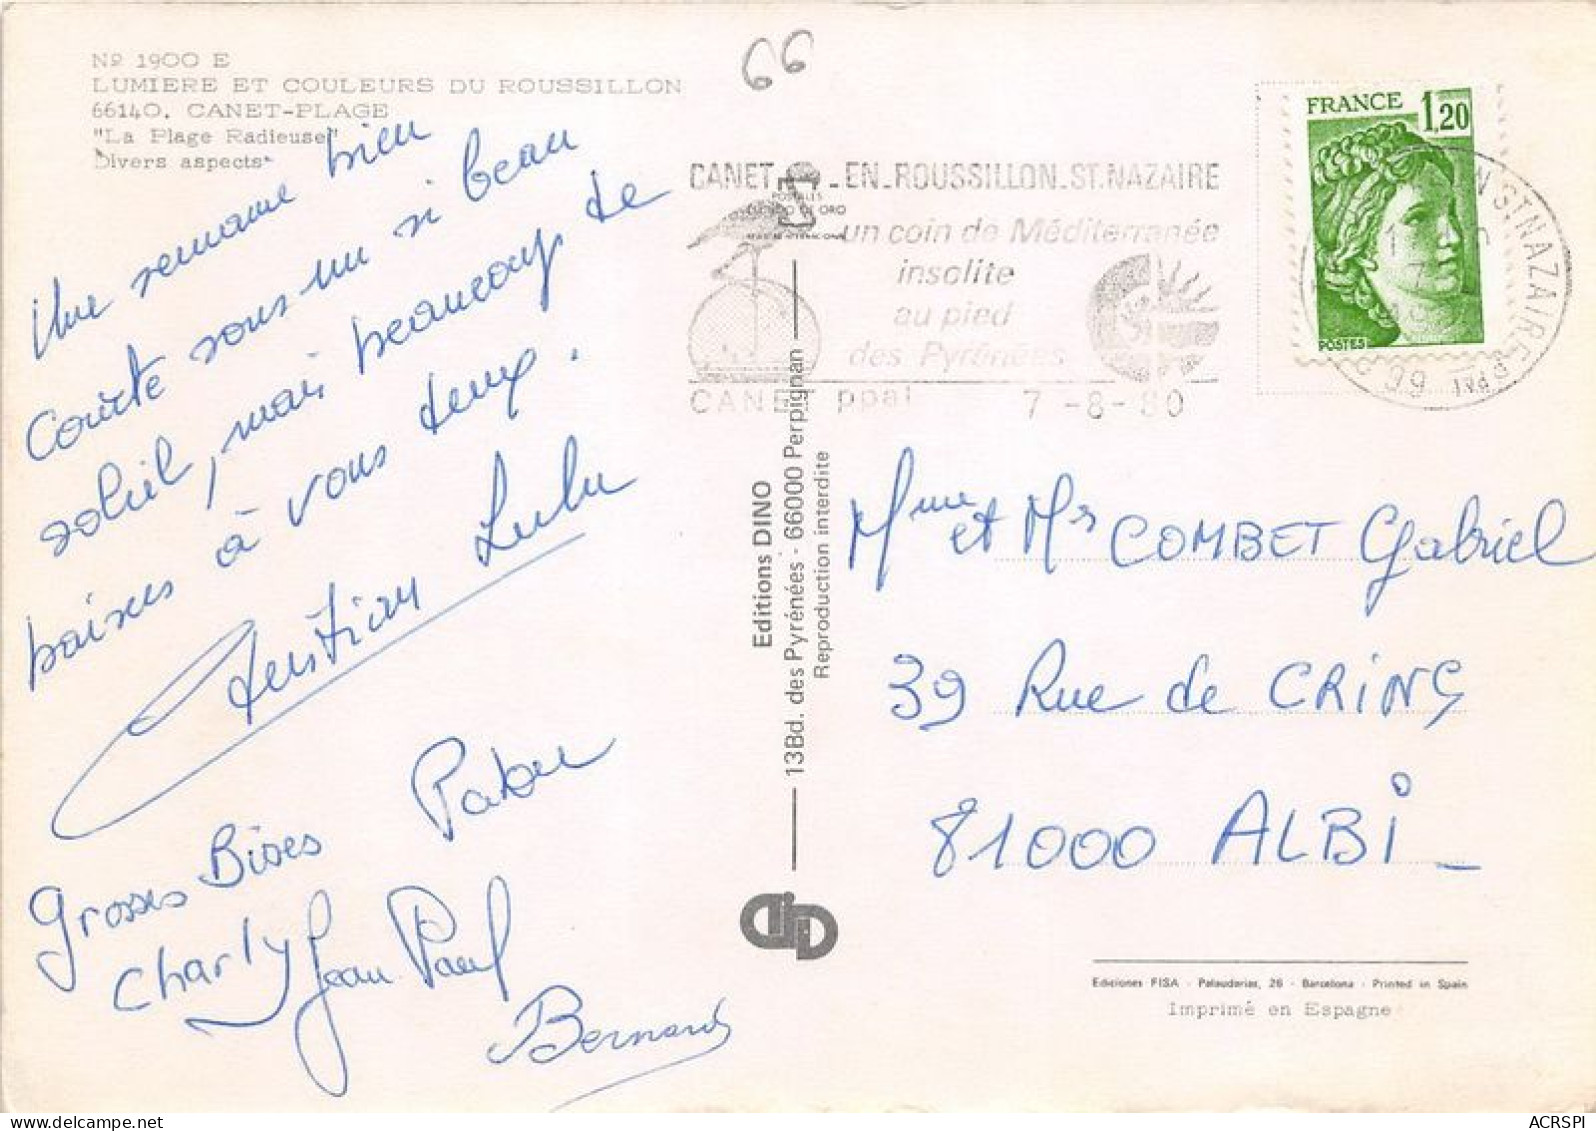 66
Nº 1900 E
LUMIERE ET COULEURS DU ROUSSILLON
66140. CANET-PLAGE
"La Plage Radieuse"
Divers aspects
Une semaine bien
courte sous un si beau
soleil, mais beaucoup de
baisers à vous deux.
Christian Lulu
Patou
Grosses Bises
Charly Jean Paul
Bernard
CANET-EN-ROUSSILLON-ST.NAZAIRE
POSTALES
DE ORO
un coin de Méditerranée
insolite
au pied
des Pyrénées
CANET ppal 7-8-80
FRANCE 1,20
POSTES
N ST NAZAIRE
66
Editions DINO
13Bd. des Pyrénées - 66000 Perpignan
Reproduction interdite
Mme et Mr COMBET Gabriel
39 Rue de CRINS
81000 ALBi
Ediciones FISA - Palaudarias, 26 - Barcelona - Printed in Spain
Imprimé en Espagne
ACRSPI